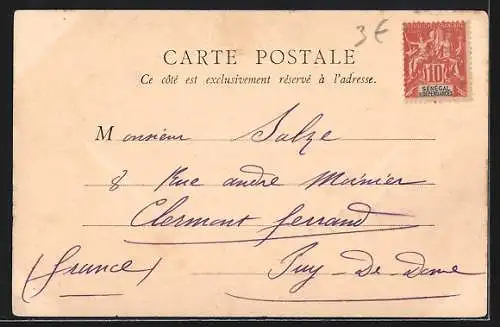 3 €
CARTE POSTALE
Ce côté est exclusivement réservé à l'adresse.
10
SÉNÉGAL
ET DÉPENDANCES
Monsieur Salze
8 Rue andre Moinier
Clermont ferrand
(france) Puy-De-Dome